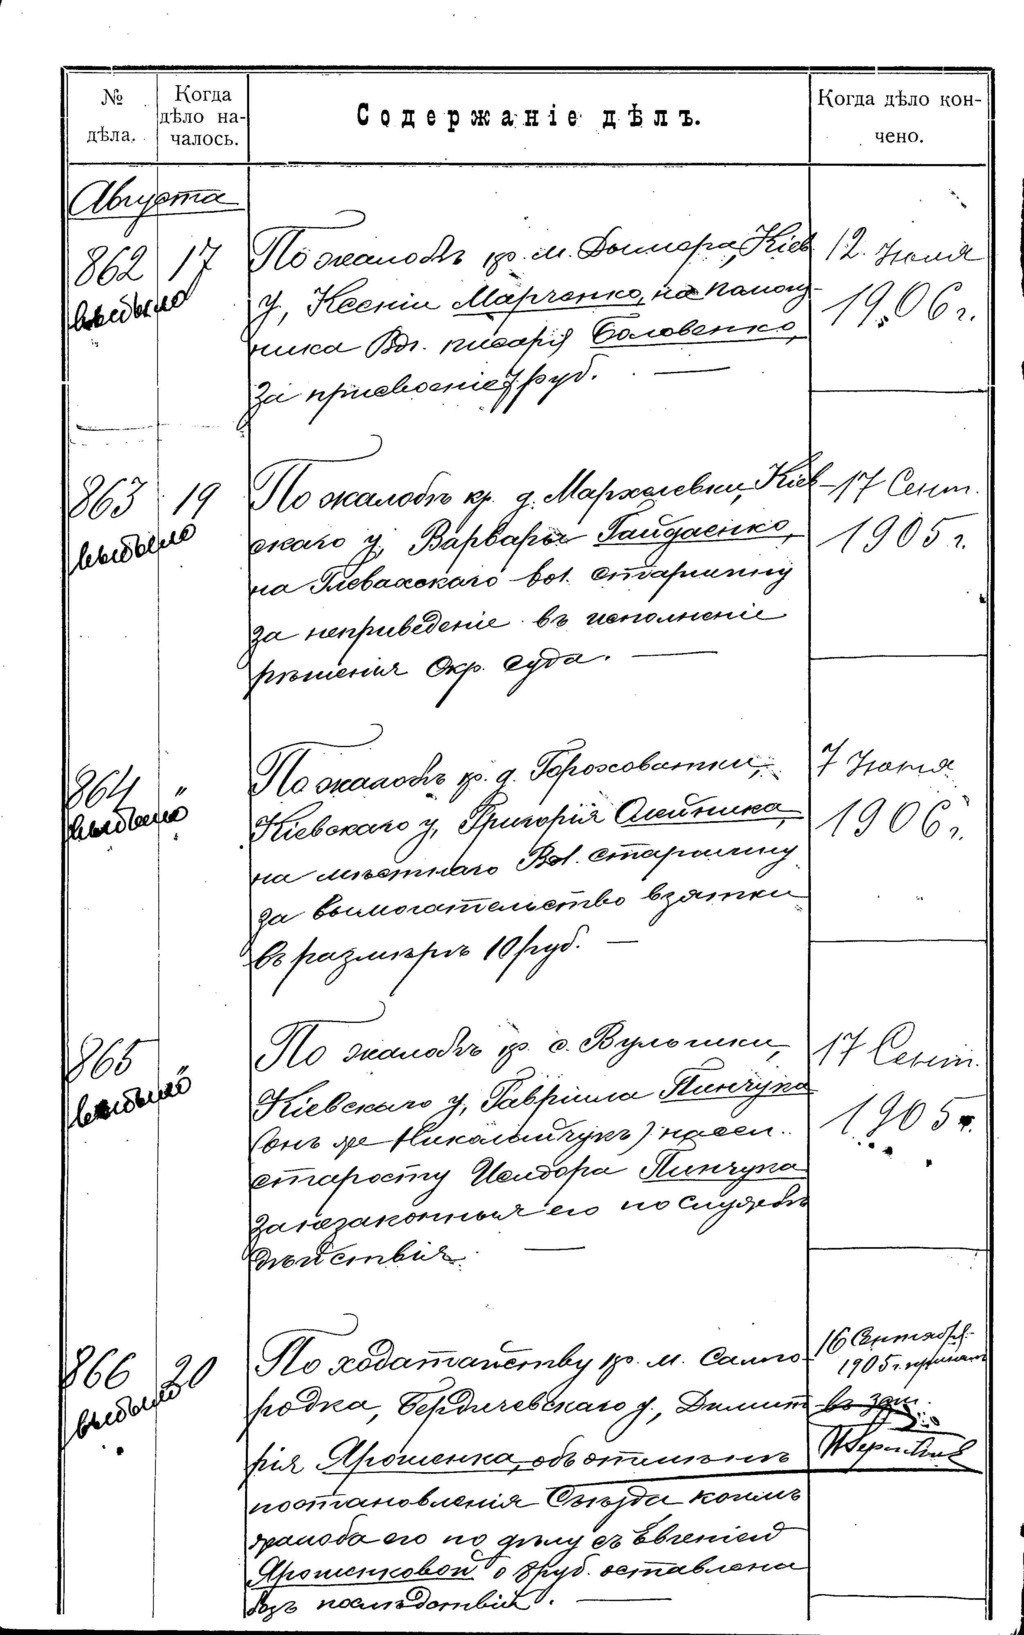 № дѣла.
Когда дѣло на-
чалось.
Содержаніе дѣлъ.
Когда дѣло кон-
чено.
Августа
862 17
выбыло
По жалобѣ кр. м. Дымера, Кіев.
у, Ксеніи Марченко, на помощ-
ника Вол. писаря Головенко,
за присвоеніе 7 руб. —
12 Іюля
1906 г.
863 19
выбыло
По жалобѣ кр. д. Мархалевки, Кіев-
скаго у, Варвары Гайдаенко,
на Глевахскаго вол. старшину
за неприведеніе въ исполненіе
рѣшенія Окр. Суда. —
17 Сент.
1905 г.
864 "
выбыло
По жалобѣ кр. д. Гороховатки,
Кіевскаго у, Григорія Олейника,
на мѣстнаго Вол. старшину
за вымогательство взятки
въ размѣрѣ 10 руб. —
7 Іюня
1906 г.
865 "
выбыло
По жалобѣ кр. с.
Кіевскаго у, Гавріила Пинчука
(онъ же Николайчукъ) на сел.
старосту Исидора Пинчука
за незаконныя его по службѣ
дѣйствія. —
17 Сент.
1905 г.
866 20
выбыло
По ходатайству кр. м. Самго-
родка, Бердичевскаго у, Димит-
рія Ярошенка, объ отмѣнѣ
постановленія Съѣзда коимъ
жалоба его по дѣлу съ Евгеніей
Ярошенковой о 8 руб. оставлена
безъ послѣдствій. —
16 Сентября
1905 г.